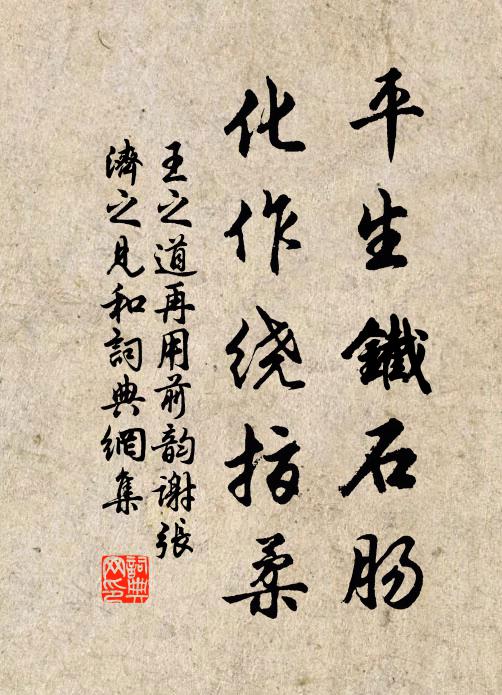 平生鐵石肠
化作绕指柔
王之道再用前韵谢張
濟之見和詞典網集
詞典網印